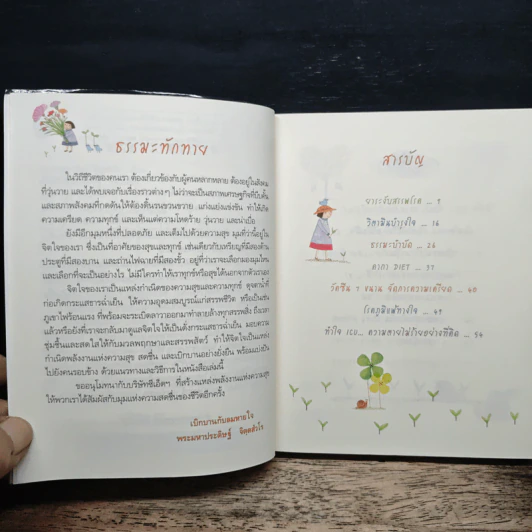 ธรรมะทักทาย
ในวิถีชีวิตของคนเรา ต้องเกี่ยวข้องกับผู้คนหลากหลาย ต้องอยู่ในสังคม
ที่วุ่นวาย และได้พบเจอกับเรื่องราวต่างๆ ไม่ว่าจะเป็นสภาพเศรษฐกิจที่บีบคั้น
และสภาพสังคมที่กดดันให้ต้องดิ้นรนขวนขวาย แก่งแย่งแข่งขัน ทำให้เกิด
ความเครียด ความทุกข์ และเห็นแต่ความโหดร้าย วุ่นวาย และน่าเบื่อ
ยังมีอีกมุมหนึ่งที่ปลอดภัย และเต็มไปด้วยความสุข มุมที่ว่านี้อยู่ใน
จิตใจของเรา ซึ่งเป็นที่อาศัยของสุขและทุกข์ เช่นเดียวกับเหรียญที่มีสองด้าน
ประตูที่มีสองบาน และถ่านไฟฉายที่มีสองขั้ว อยู่ที่ว่าเราจะเลือกมองมุมไหน
และเลือกที่จะเป็นอย่างไร ไม่มีใครทำให้เราทุกข์หรือสุขได้นอกจากตัวเราเอง
จิตใจของเราเป็นแหล่งกำเนิดของความสุขและความทุกข์ ดุจตาน้ำที่
ก่อเกิดกระแสธารฉ่ำเย็น ให้ความอุดมสมบูรณ์แก่สรรพชีวิต หรือเป็นเช่น
ภูเขาไฟร้อนแรง ที่พร้อมจะระเบิดลาวาออกมาทำลายล้างทุกสรรพสิ่ง ถึงเวลา
แล้วหรือยังที่เราจะกลับมาดูแลจิตใจให้เป็นดั่งกระแสธารฉ่ำเย็น มอบความ
ชุ่มชื้นและสดใสให้กับมวลพฤกษาและสรรพสัตว์ ทำให้จิตใจเป็นแหล่ง
กำเนิดพลังงานแห่งความสุข สดชื่น และเบิกบานอย่างยั่งยืน พร้อมแบ่งปัน
ไปยังคนรอบข้าง ด้วยแนวทางและวิธีการในหนังสือเล่มนี้
ขออนุโมทนากับบริษัทซีเอ็ดฯ ที่สร้างแหล่งพลังงานแห่งความสุข
ให้พวกเราได้สัมผัสกับมุมแห่งความสดชื่นของชีวิตอีกครั้ง
เบิกบานกับลมหายใจ
พระมหาประดิษฐ์
สารบัญ
ยาระงับสารพัดโรค .. 9
วิตามินบำรุงใจ .. 16
ธรรมะบำบัด .. 26
คาถา DIET .. 37
วัคซีน 7 ขนาน จัดการความเครียด .. 40
โรคภูมิแพ้ทางใจ .. 49
ทำใจ ICU... ความตายไม่ร้ายอย่างที่คิด .. 54